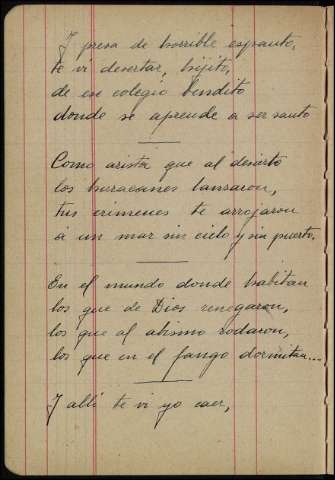 Y presa de horrible espanto,
te vi desertar, hijito,
de ese colegio bendito
donde se aprende a ser santo
Como arista que al desierto
los huracanes lanzaron,
tus crimenes te arrojaron
a un mar sin cielo y sin puerto.
En el mundo donde habitan
los que de Dios renegaron,
los que al abismo rodaron,
los que en el fango dormitan...
Y allí te vi yo caer,